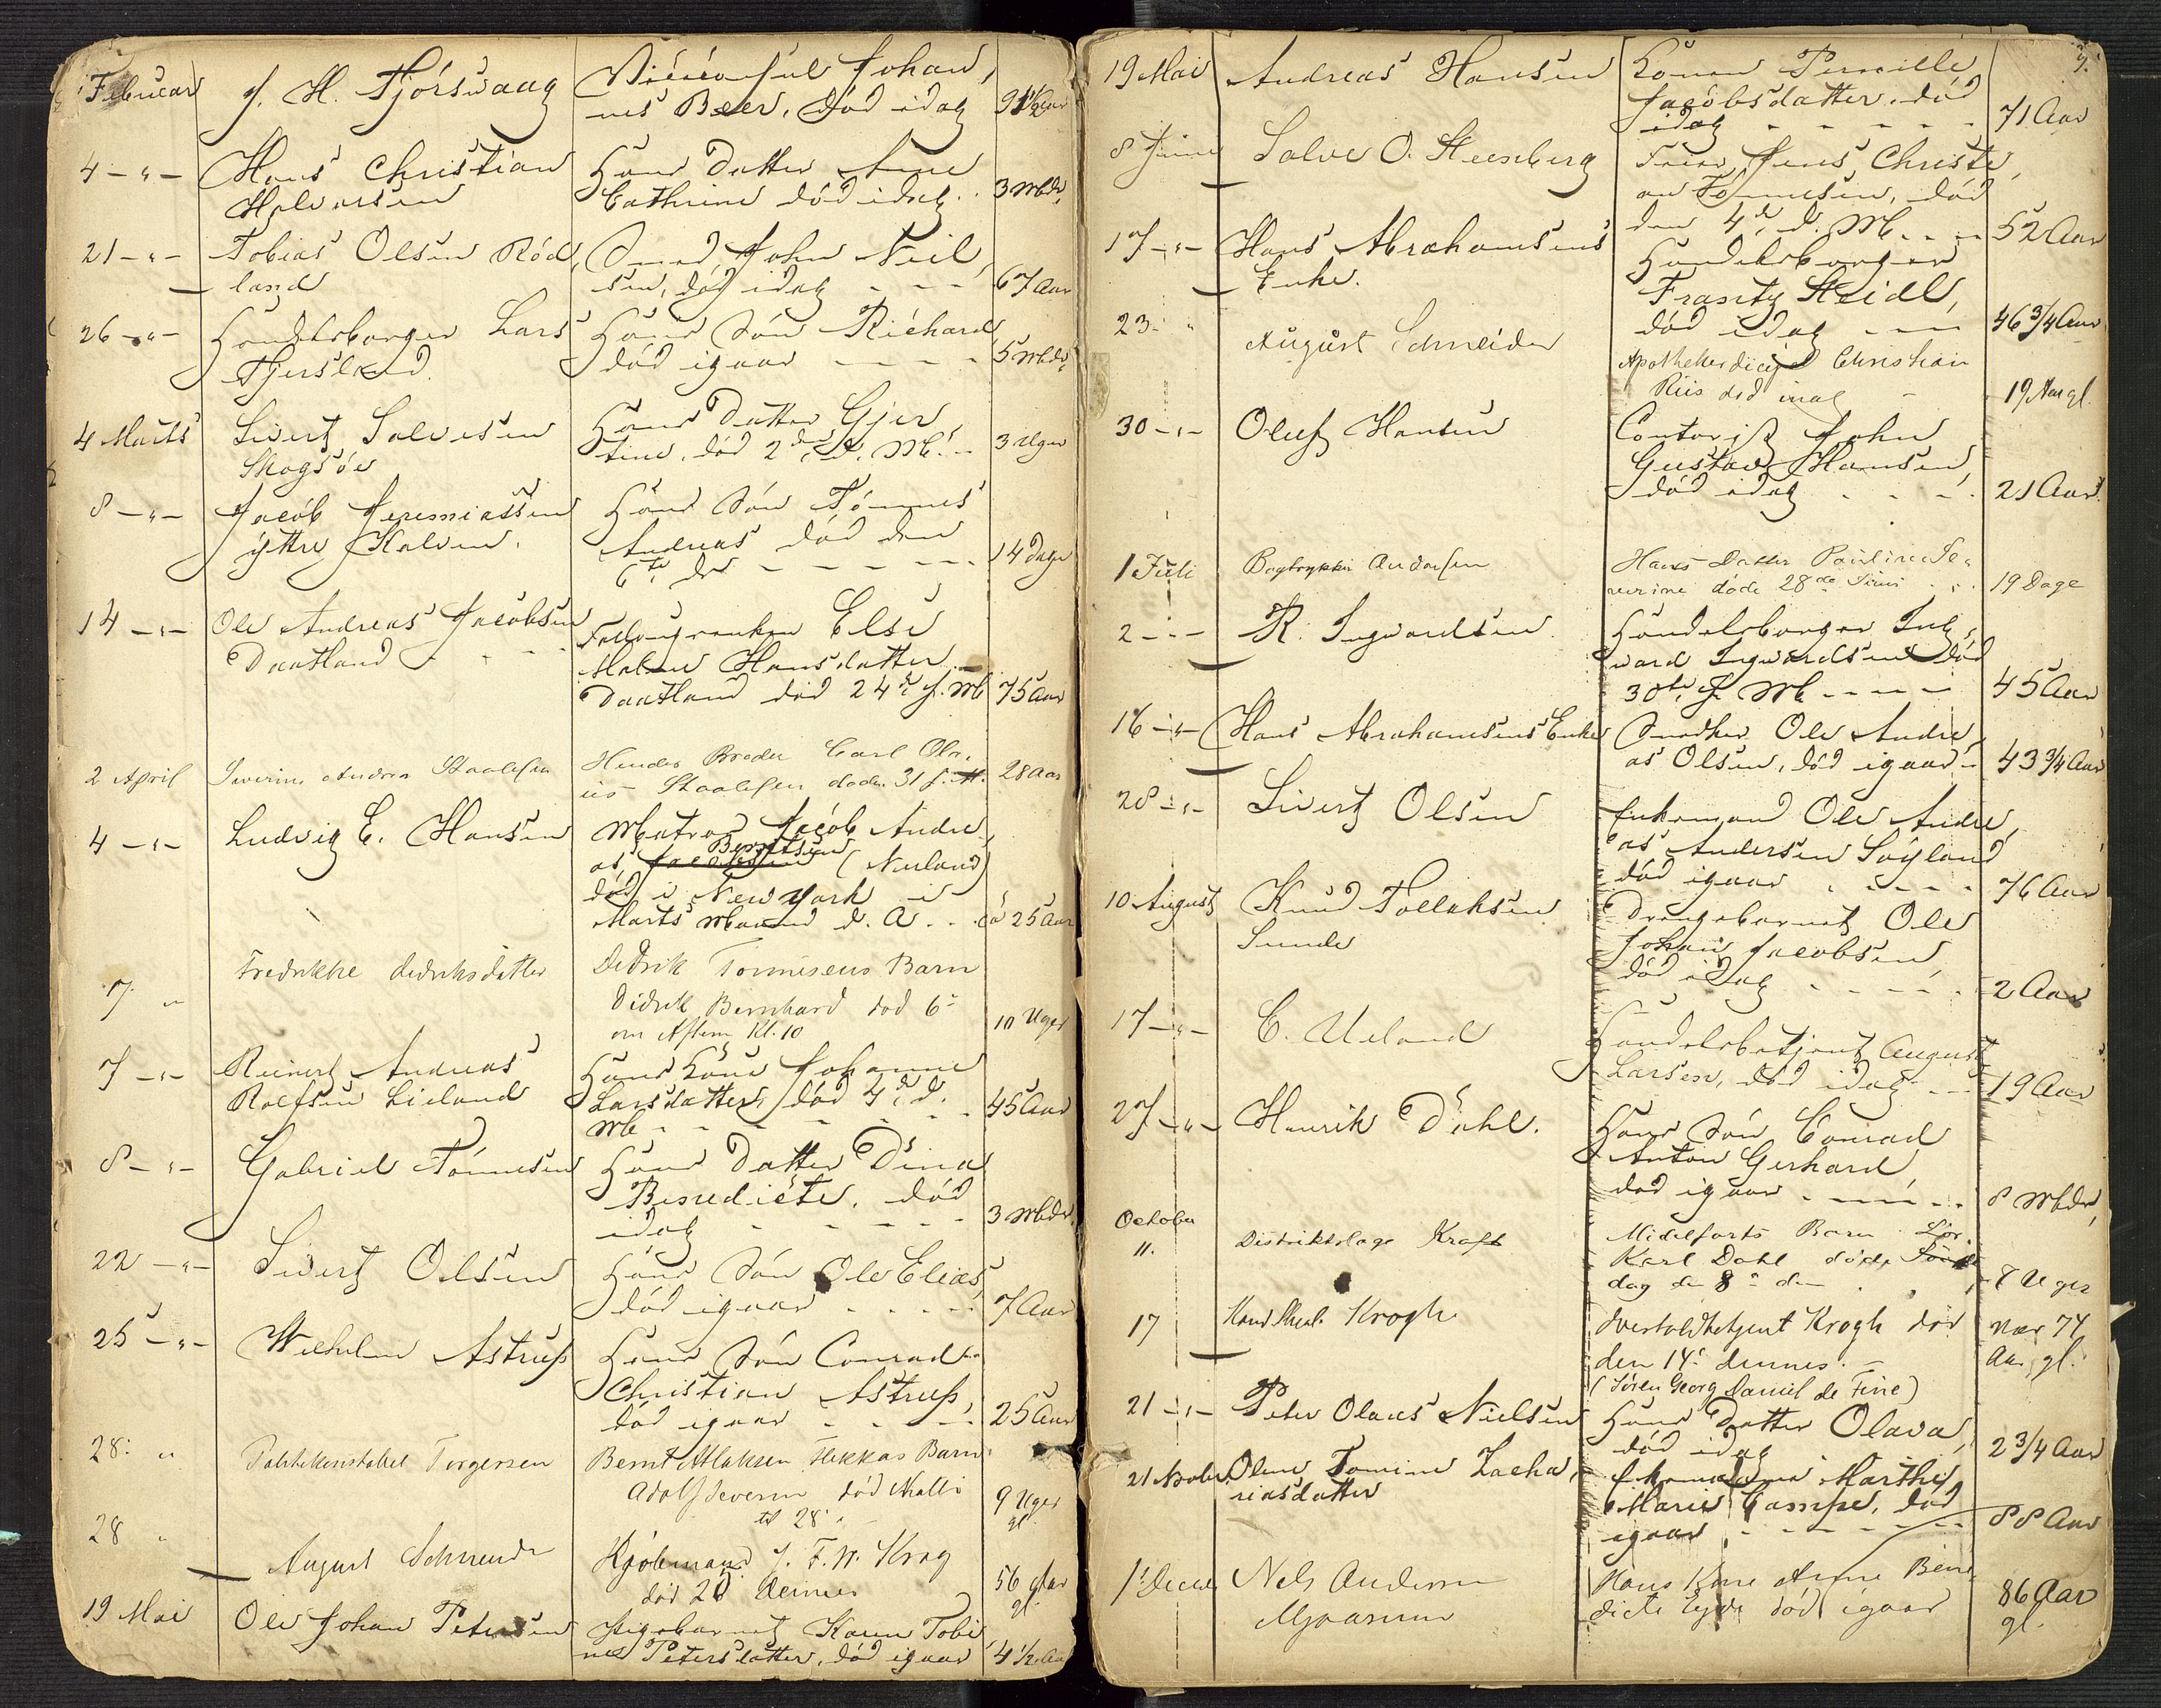 Februar
J. H. Tjórswaag
Viceconsul Johan,
nes Beer, død idag
91½ Aar
4 - " -
Hans Christian
Halvorsen
Hans Datter Anne
Cathrine død idag.
3 Mdr.
21 - " -
Tobias Olsen Rød,
land
Smed John Neil,
sen, død idag - - -
67 Aar
26 - " -
Handelsborger Lars
Tjersland.
Hans Søn Richard
død igaar - - - -
5 Mdr.
4 Marts
Sivert Salvesen
Skogsøe
Hans Datter Gjer
tine, død 2den d. Md.
3 Uger
8 - " -
Jacób Jeremiassen
ýttre Kalven.
Hans Søn Tönnes
Andreas død den
6te ds - - - - -
14 Dage
14 - " -
Ole Andreas Jacobsen
Daatland
Else
Malene Hansdatter
Daatland død 24de f. Md
75 Aar
2 April
Severine Andrea Staalesen
Hendes Broder Carl Ola,
us Staalesen døde 31 f. M.
28 Aar
4 - " -
Ludvig E. Hansen
Matros Jacób Andre,
Berntsen
as (Nerland)
død i New York i
Marts Maaned d. A. . .
ca 25 Aar
7 "
Fredrikke Dedriksdatter
Dedrik Tonnesens Barn
Didrik Bernhard død 6te
om Aftenen Kl. 10
10 Uger
7 - " -
Reinert Andreas
Rolfsen Lieland
Hans Kone Johanne
Larsdatter, død 4de d.
Md - - - - -
45 Aar
8 - " -
Gabriel Tönnesen
Hans Datter Dina
Benedicte, død
idag - - - - -
3 Mdr.
22 - " -
Sivert Olsen
Hans Søn Ole Elias,
død igaar - - - -
7 Aar
25 - " -
Wilhelm Astrup
Hans Søn Conrad
Christian Astrup,
død igaar - - - -
25 Aar
28 "
Politikonstabel Torgersen
Bernt Aslaksen Hekkas Barn
Adolf Severin død Natt
til 28
9 Uger
gl
28 "
August Schneider
Kjøbmand J. F. W. Krog
død 28 dennes
56 Aar
gl.
19 Mai
Ole Johan Petersen
Pigebarnet Karen Tobi
ne Petersdatter, død igaar
4½ Aar
9.
19 Mai
Andreas Hansen
Konen Pernille
Jacobsdatter, død
idag - - - - -
71 Aar
8 Juni
Salve O. Steenberg
Jens Christi,
an Tönnesen, død
den 4de d. Md. - - -
52 Aar
17 - " -
Hans Abrahamsens
Enke.
Handelsborger
Frantz Steidl,
død idag - - -
46 3/4 Aar
23 "
August Schneider
Apothekerdicipel Christian
Riis død idag -
19 Aar gl.
30 - " -
Oluf Hansen
Contorist John
Gustav Hansen,
død idag - - - -
21 Aar
1 Juli
Bogtrykker Andersen
Hans Datter Pauline Se,
verine døde 28de Juni
19 Dage
2 - " -
R. Ingvardsen
Handelsborger Ing,
vard Ingvardsen død
30te f. Md - - - -
45 Aar
16 - " -
Hans Abrahamsens Enke
Snedker Ole Andre,
as Olsen, død igaar -
43 3/4 Aar
28 - " -
Sivert Olsen
Enkemand Ole Andre,
as Andersen Söyland
død igaar - - - -
76 Aar
10 August
Knud Tollaksen
Sunde
Drengebarnet Ole
Johan Jacobsen,
død idag - - - - -
2 Aar
17 - " -
C. Ueland
Handelsbetjent August
Larsen, død idag - - -
19 Aar
27 - " -
Henrik Dahl.
Hans Søn Conrad
Anton Gerhard
død igaar - - - -
8 Mdr,
October
11.
Distriktslæge Kraft
Midelfarts Barn
Karl Dahl døde Lør
dag den 8de ds
8 Uger
17
Krogh
Overtoldbetjent Krogh død
den 14de dennes. -
(Søren Georg Daniel de Fine)
nær 74
Aar gl.
21 - " -
Peter Olaus Nielsen
Hans Datter Olava,
død idag
2 3/4 Aar
21 Novbr.
Oline Tomine Zacha,
riasdatter
Enkemadame Marthe
Marie Campe, død
igaar - - - - -
88 Aar
1 Decbr
Nels Andersen
Hans Kone Anne Bene
dicte død igaar
86 Aar
gl.